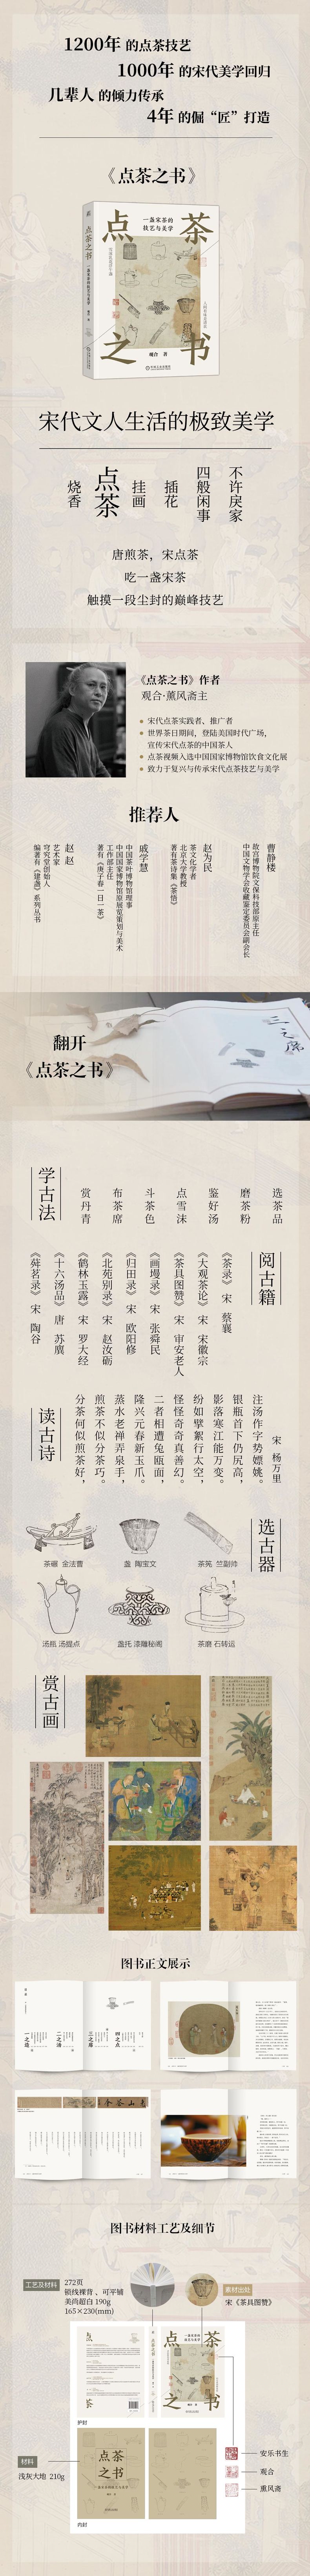 1200年 的点茶技艺
1000年 的宋代美学回归
几辈人 的倾力传承
4年 的倔“匠”打造
《点茶之书》
点茶之书
一盏宋茶的
技艺与美学
观合 著
宋代文人生活的极致美学
不许戾家
四般闲事
插花
挂画
点茶
烧香
唐煎茶，宋点茶
吃一盏宋茶
触摸一段尘封的巅峰技艺
《点茶之书》作者
观合·薰风斋主
宋代点茶实践者、推广者
世界茶日期间，登陆美国时代广场，
宣传宋代点茶的中国茶人
点茶视频入选中国国家博物馆饮食文化展
致力于复兴与传承宋代点茶技艺与美学
推荐人
曹静楼
故宫博物院文保科技部原主任
中国文物学会收藏鉴定委员会副会长
赵为民
茶文化学者
北京大学教授
著有茶诗集《茶悟》
戚学慧
中国茶叶博物馆理事
中国国家博物馆原展览策划与美术
工作部主任
著有《庚子春一日一茶》
赵赵
艺术家
穹究堂创始人
编著有《建盏》系列丛书
翻开
《点茶之书》
学古法
选茶品
磨茶粉
鉴好汤
点雪沫
斗茶色
布茶席
赏丹青
阅古籍
《茶录》 宋 蔡襄
《大观茶论》 宋 宋徽宗
《茶具图赞》 宋 审安老人
《画墁录》 宋 张舜民
《归田录》 宋 欧阳修
《北苑别录》 宋 赵汝砺
《鹤林玉露》 宋 罗大经
《十六汤品》 唐 苏廙
《荈茗录》 宋 陶谷
读古诗
宋 杨万里
注汤作字势嫖姚。
银瓶首下仍尻高，
影落寒江能万变。
纷如擘絮行太空，
怪怪奇奇真善幻。
二者相遭兔瓯面，
隆兴元春新玉爪。
蒸水老禅弄泉手，
煎茶不似分茶巧。
分茶何似煎茶好，
选古器
茶碾 金法曹
盏 陶宝文
茶筅 竺副帅
汤瓶 汤提点
盏托 漆雕秘阁
茶磨 石转运
赏古画
图书正文展示
一之造
二之汤
三之席
四之点
图书材料工艺及细节
工艺及材料
272页
锁线裸背、可平铺
美尚超白 190g
165×230(mm)
素材出处
宋《茶具图赞》
点茶之书
护封
材料
浅灰大地 210g
点茶
之书
内封
安乐书生
观合
熏风斋